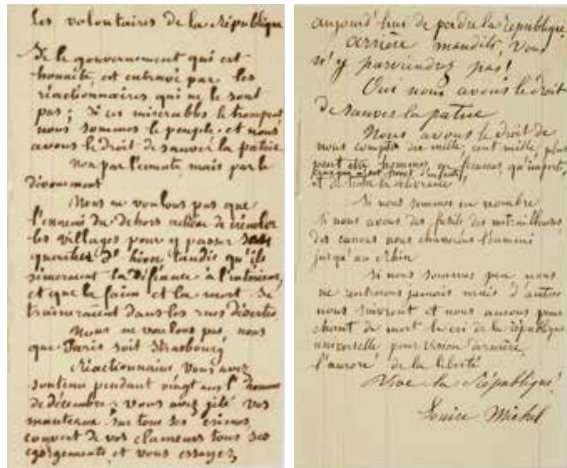 Les volontaires de la République
Si le gouvernement qui est
honnête, est entravé par les
réactionnaires qui ne le sont
pas ; si ces misérables le trompent
nous sommes le peuple et nous
avons le droit de sauver la patrie
Non par l'émeute mais par le
dévouement
Nous ne voulons pas que
l'ennemi du dehors achève de
les villages pour y passer ses
quartiers d'hiver tandis qu'ils
sèmeraient la défiance à l'intérieur,
et que la faim et la mort se
traîneraient dans les rues désertes
Nous ne voulons pas nous
que Paris soit Strasbourg
Réactionnaires, vous avez
soutenu pendant vingt ans l'homme
de décembre ; vous avez jeté vos
manteaux sur tous ses crimes,
couvert de vos clameurs tous ses
égorgements et vous essayez
aujourd'hui de perdre la république
arrière maudits, vous
n'y parviendrez pas !
Oui nous avons le droit
de sauver la patrie
Nous avons le droit de
nous compter dix mille, cent mille, plus
peut être hommes, ou femmes, qu'importe
et de
Si nous sommes en nombre
si nous avons des fusils des mitrailleuses
des canons nous chasserons l'ennemi
jusqu'au Rhin
Si nous sommes peu nous
ne rentrerons jamais mais d'autres
nous suivront et nous aurons pour
chant de mort le cri de la république
universelle pour vision dernière,
l'aurore de la liberté
Vive la République !
Louise Michel